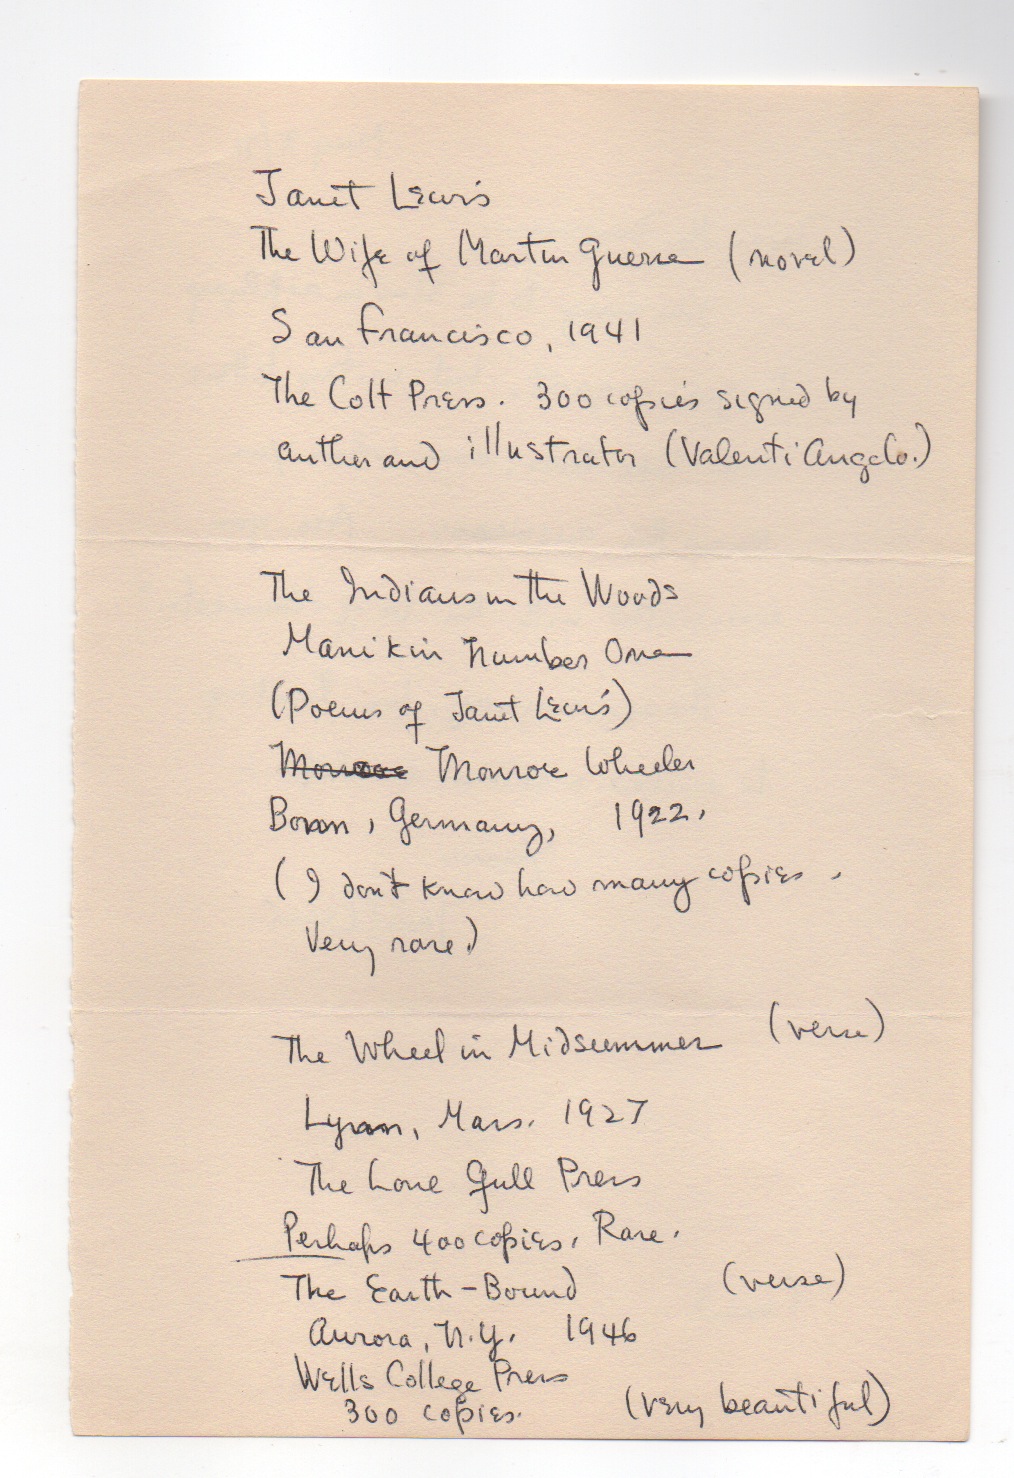 Janet Lewis
The Wife of Martin Guerre (novel)
San Francisco, 1941
The Colt Press. 300 copies signed by
author and illustrator (Valenti Angelo.)
The Indians in the Woods
Manikin Number One
(Poems of Janet Lewis)
Monroe Monroe Wheeler
Bonn, Germany, 1922.
(I don't know how many copies.
Very rare.)
The Wheel in Midsummer (verse)
Lynn, Mass. 1927
The Lone Gull Press
Perhaps 400 copies. Rare.
The Earth-Bound (verse)
Aurora, N.Y. 1946
Wells College Press
300 copies. (very beautiful)